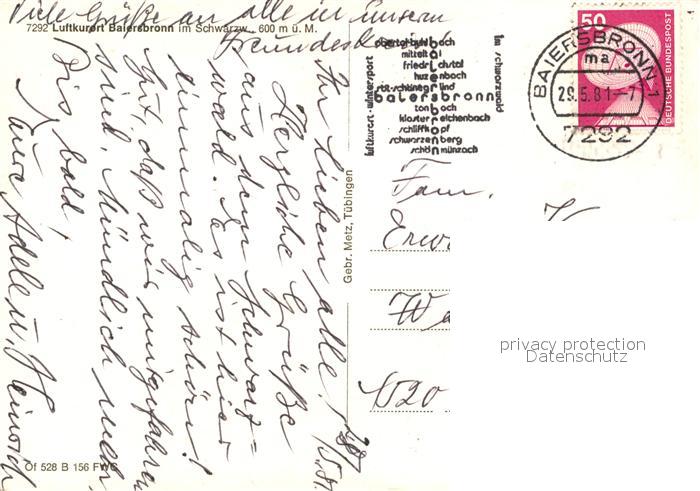 Viele Grüße an alle in unserm
Freundeskreis
7292 Luftkurort Baiersbronn im Schwarzw., 600 m ü. M.
Ihr lieben alle!
Herzliche Grüße
aus dem Schwarz-
wald. Es ist hier
einmalig schön!
Gut, daß wir mitgefahren
sind. Mündlich mehr.
Bis bald,
Eure Adele u. Heinrich
Of 528 B 156 FWG
Gebr. Metz, Tübingen
luftkurort-wintersport
im schwarzwald
mitteltal
friedrichstal
huzenbach
baiersbronn
tonbach
kloster reichenbach
schliffkopf
schwarzenberg
schönmünzach
baiersbronn
50
DEUTSCHE BUNDESPOST
BAIERSBRONN 1
ma
29.5.81-7
7292
Fam.
privacy protection
Datenschutz